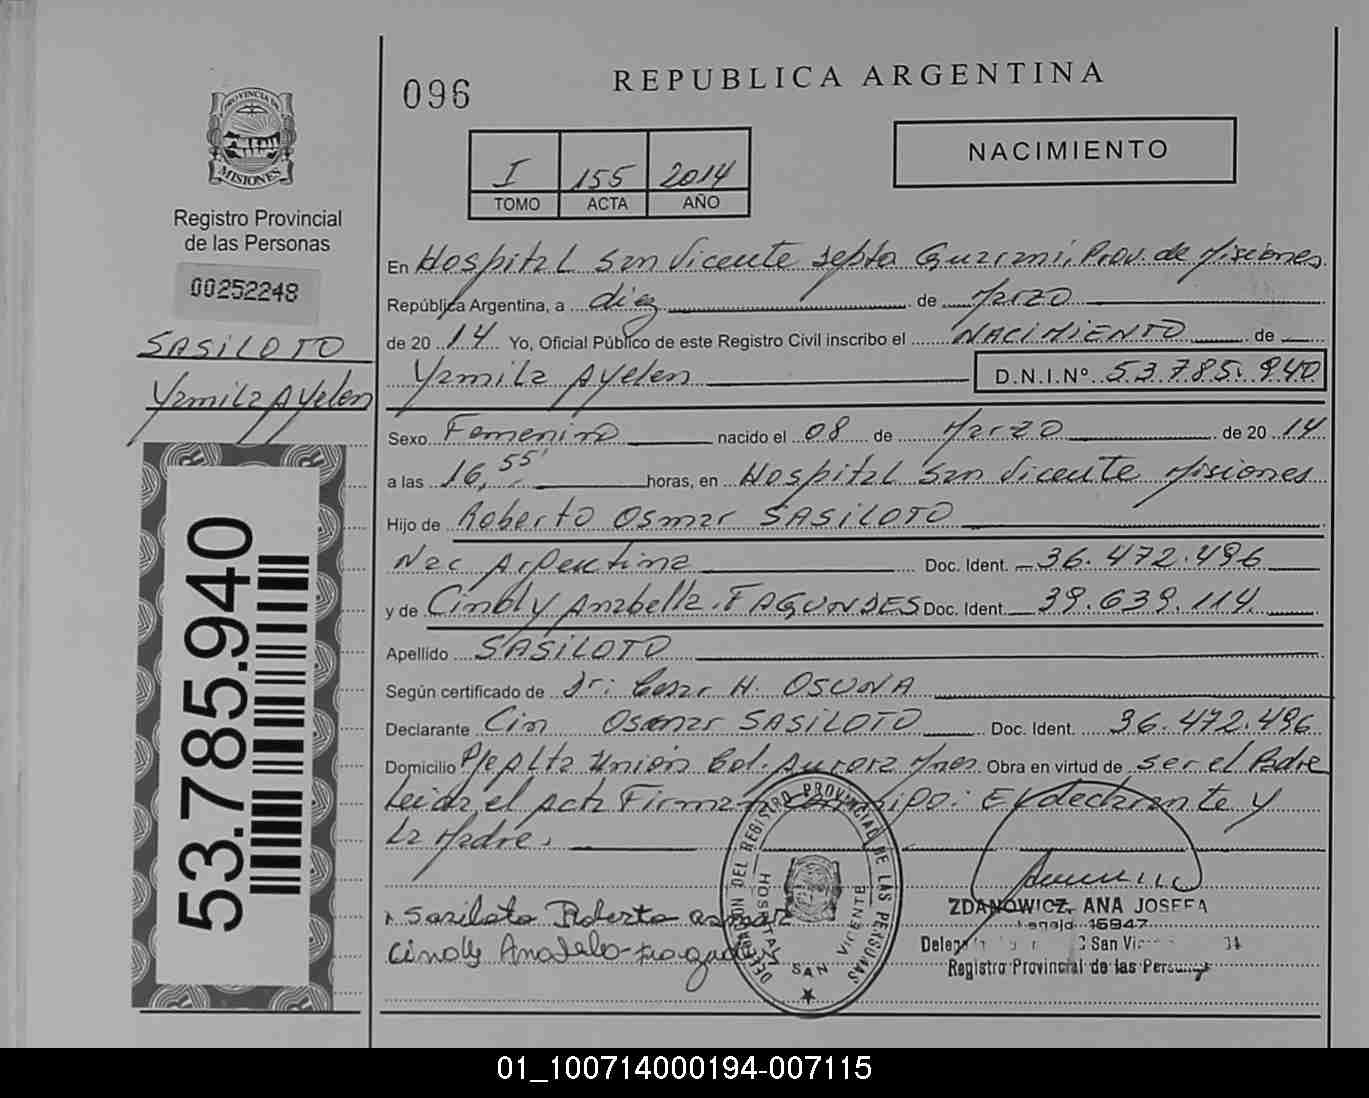 096
REPUBLICA ARGENTINA
PROVINCIA DE
MISIONES
Registro Provincial
de las Personas
00252248
SASILOTO
Yamila Ayelen
53.785.940
I 155 2014
TOMO ACTA AÑO
NACIMIENTO
En Hospital San Vicente Depto Guarani, Prov. de Misiones
República Argentina, a diez de Marzo
de 20 14 Yo, Oficial Público de este Registro Civil inscribo el NACIMIENTO de
Yamila Ayelen D.N.I.Nº 53.785.940
Sexo Femenino nacido el 08 de Marzo de 20 14
a las 16,55' horas, en Hospital San Vicente Misiones
Hijo de Roberto Osmar SASILOTO
Nac Argentina Doc. Ident. 36.472.496
y de Cindy Anabella FAGUNDES Doc. Ident. 39.639.114
Apellido SASILOTO
Según certificado de Dr: Cesar H. OSUNA
Declarante Osmar SASILOTO Doc. Ident. 36.472.496
Domicilio Pje Alta Unión Col. Aurora Mnes Obra en virtud de ser el Padre
Leida el acta Firman El declarante y
La Madre.
Sasiloto Roberto osmar
Cindy
DELEGACION DEL REGISTRO PROVINCIAL DE LAS PERSONAS
HOSPITAL
SAN VICENTE
ZDANOWICZ, ANA JOSEFA
Legajo 16947
San
Registro Provincial de las Personas
01_100714000194-007115